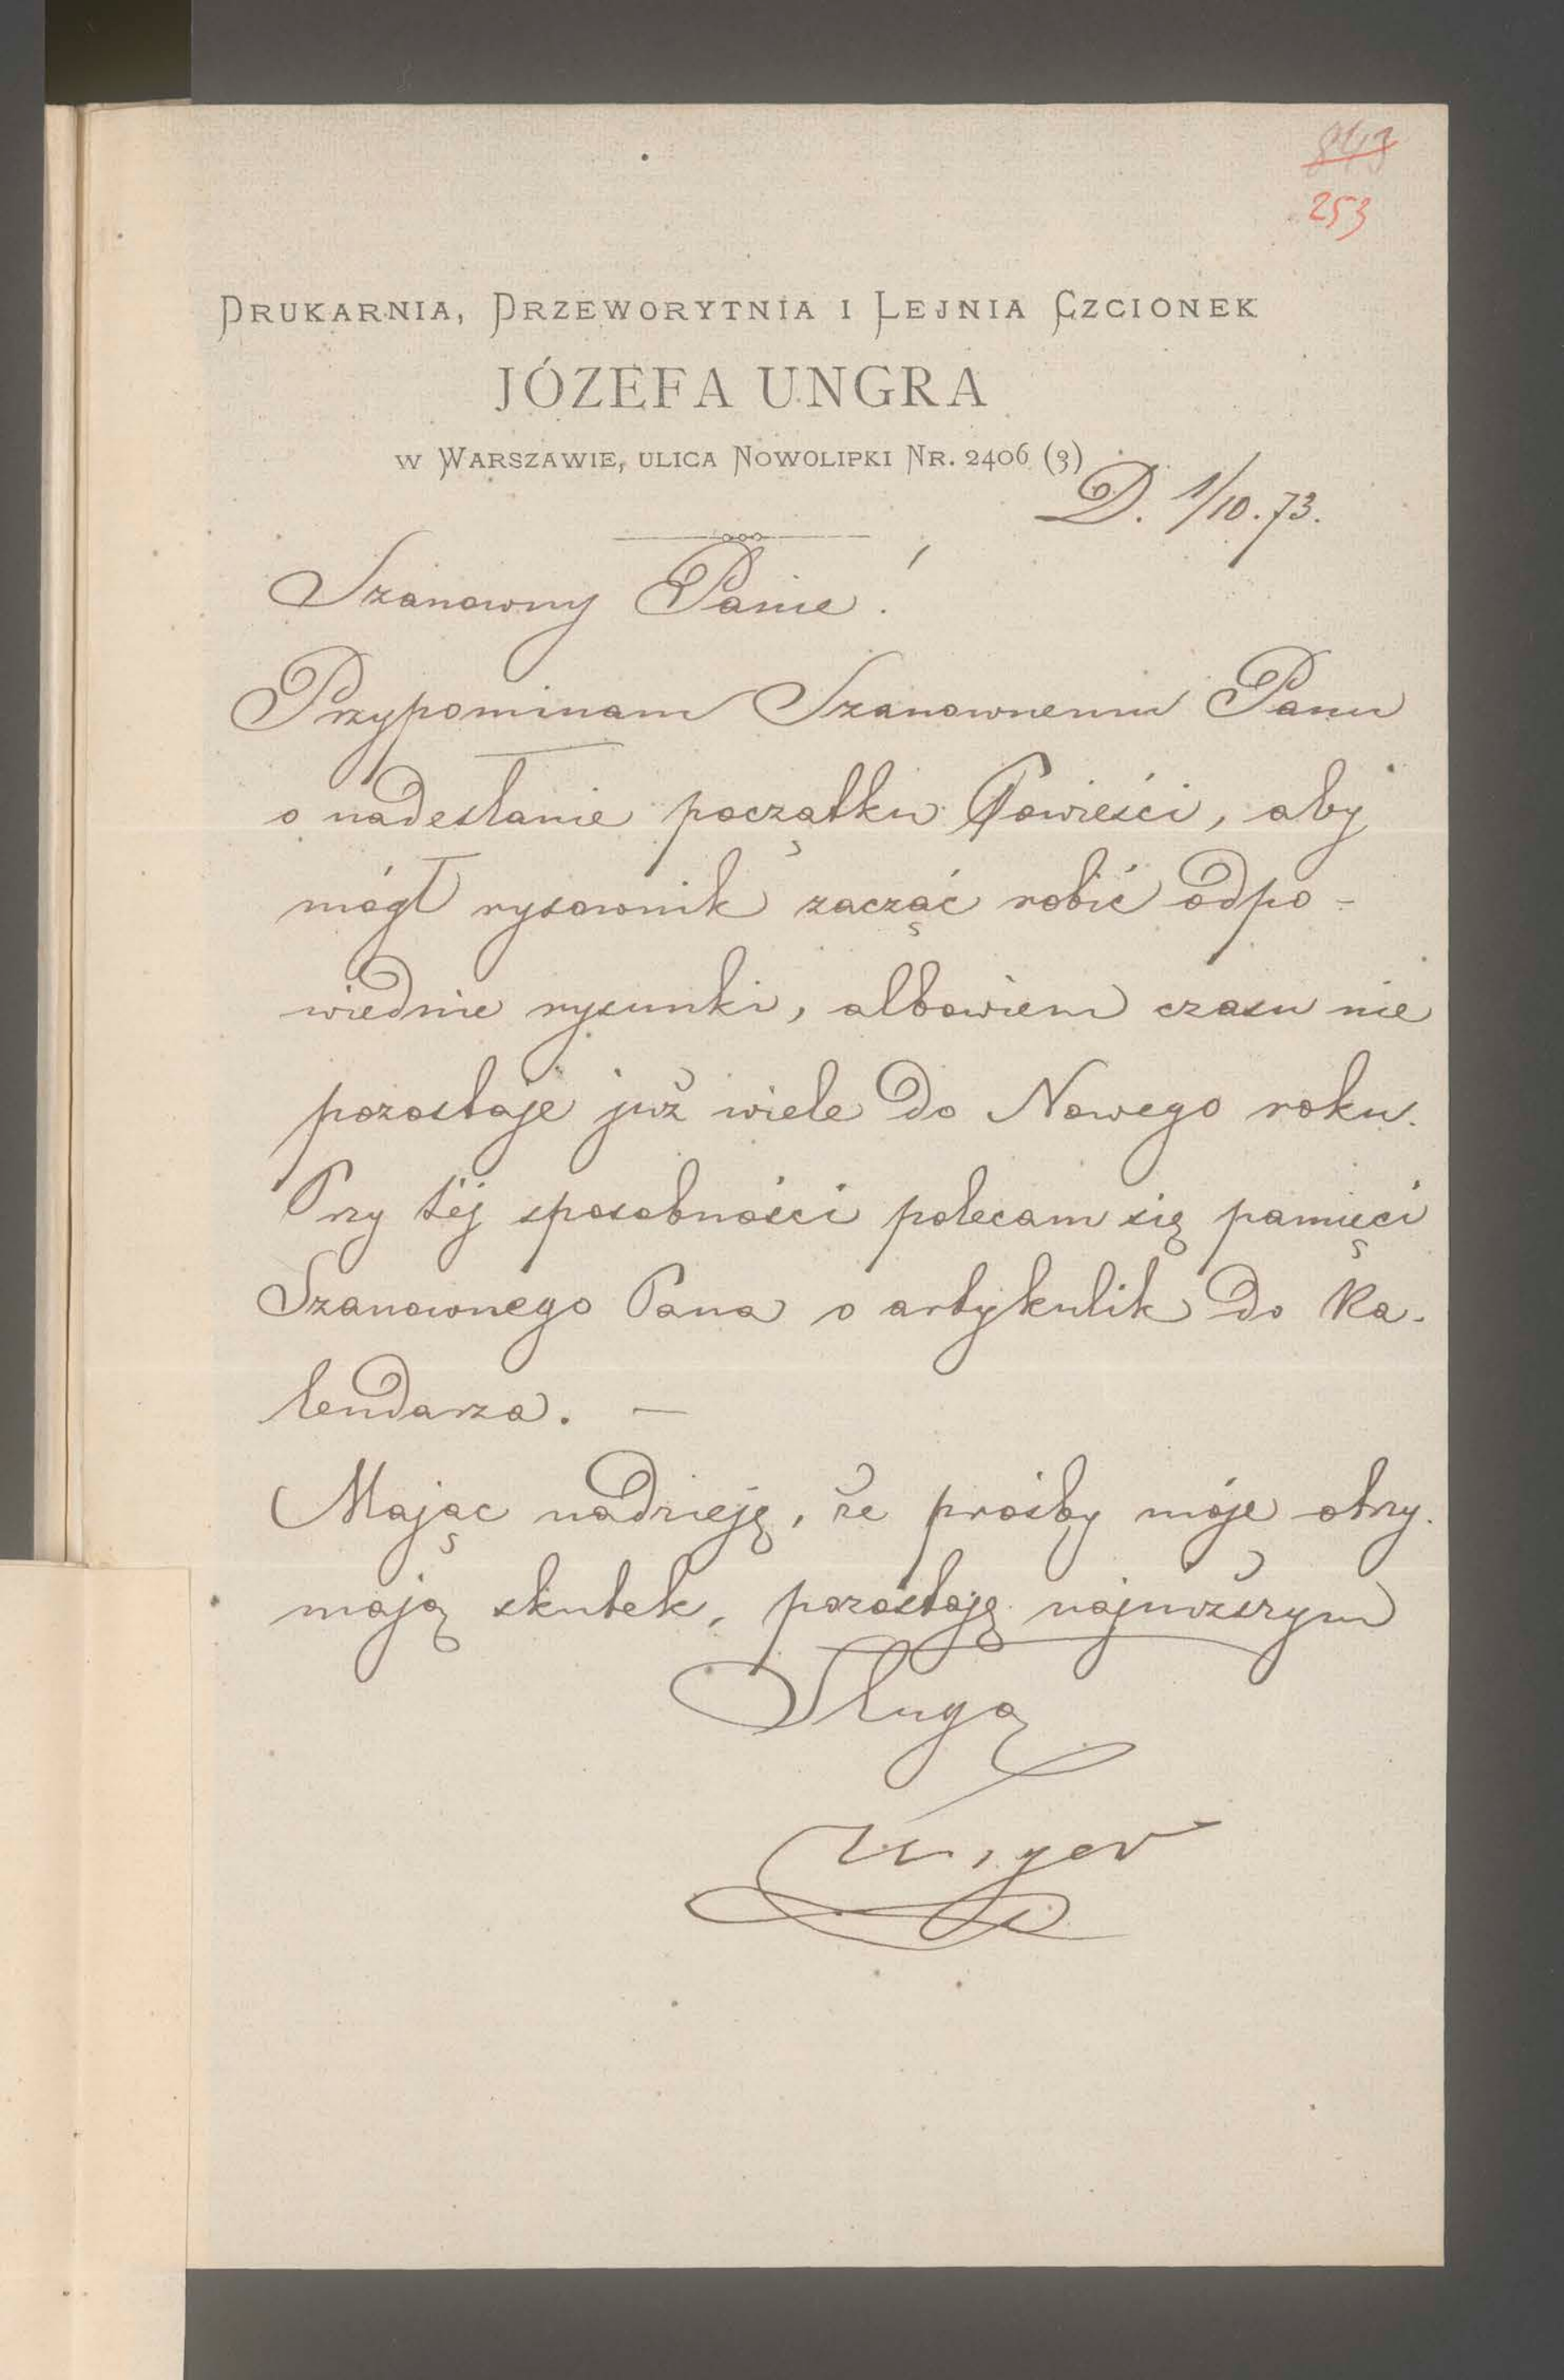 843
253
DRUKARNIA, DRZEWORYTNIA I LEJNIA CZCIONEK
JÓZEFA UNGRA
W WARSZAWIE, ULICA NOWOLIPKI NR. 2406 (3)
D. 1/10. 73.
Szanowny Panie!
Przypominam Szanownemu Panu
o nadesłanie początku Powieści, aby
mógł rysownik zacząć robić odpo-
wiednie rysunki, albowiem czasu nie
pozostaje już wiele do Nowego roku.
Przy téj sposobności polecam się pamięci
Szanownego Pana o artykulik do Ka-
lendarza. —
Mając nadzieję, że prośby moje otrzy-
mają skutek, pozostaję najniższym
Sługą
Unger